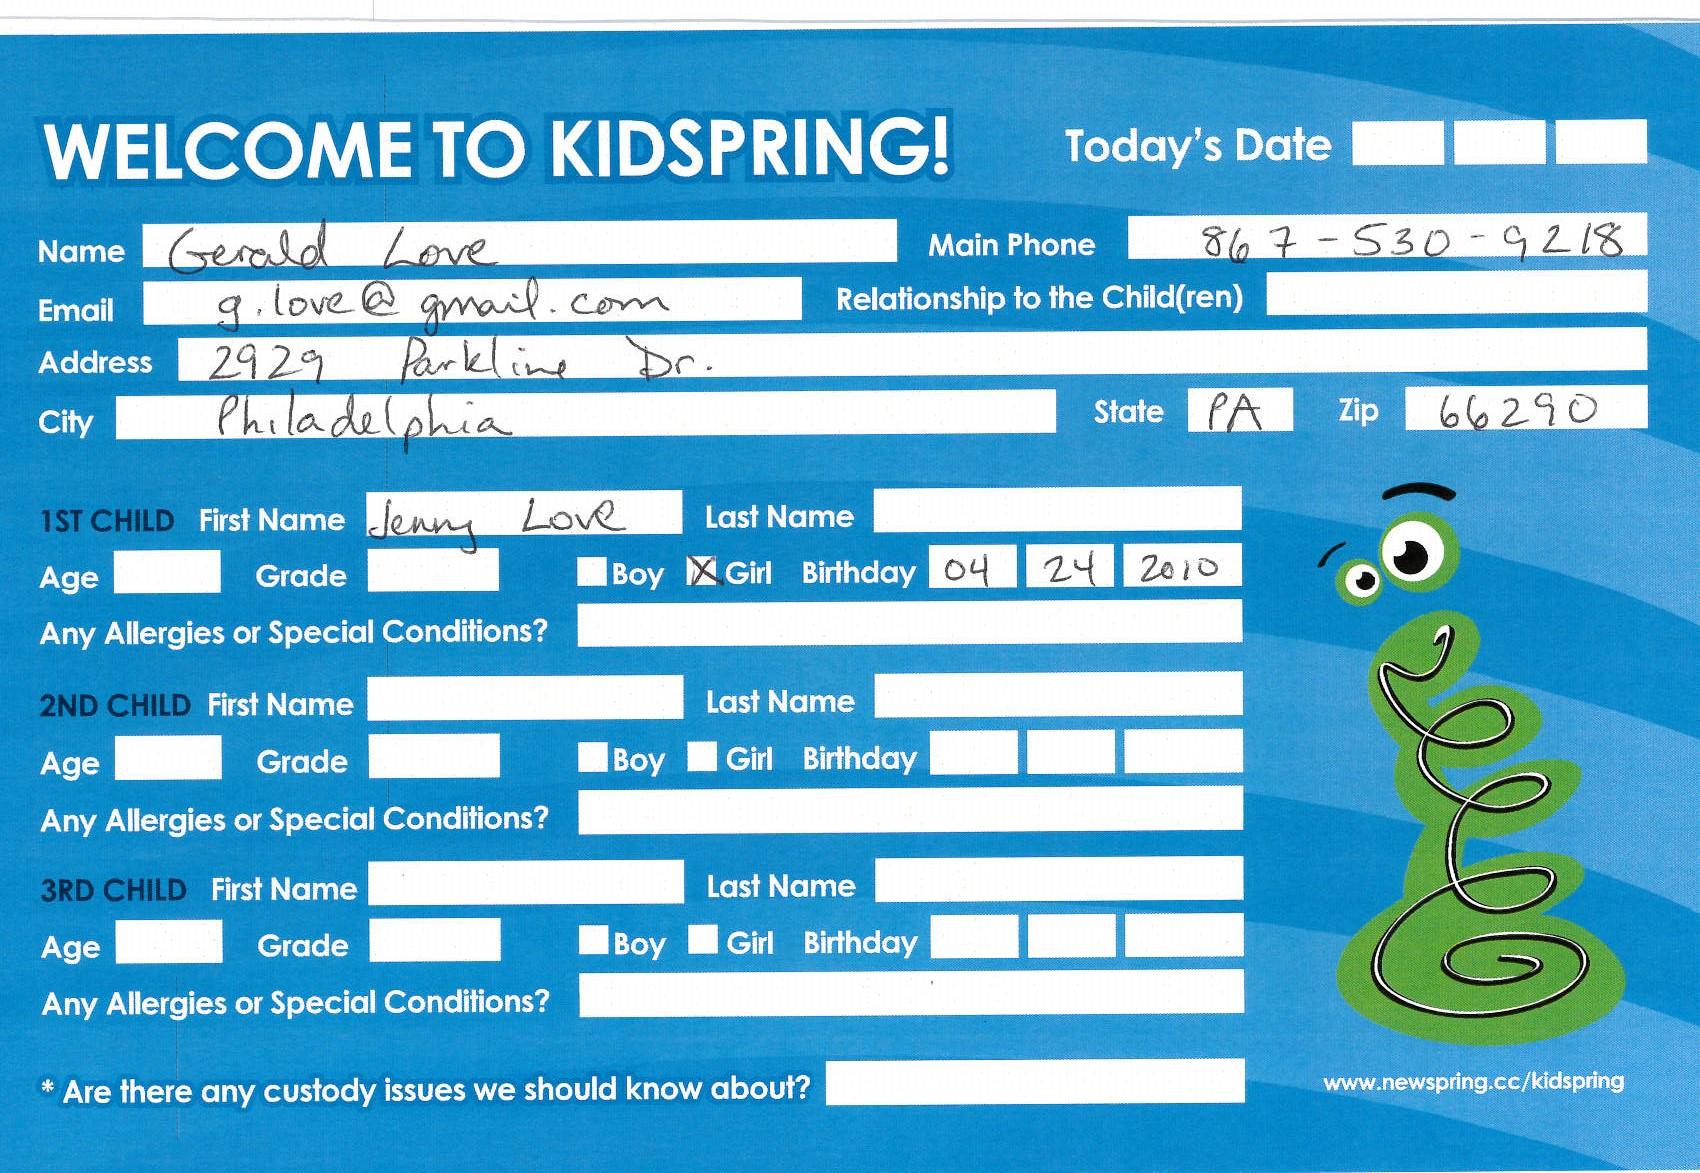 WELCOME TO KIDSPRING! Today's Date
Name Gerald Love Main Phone 867-530-9218
Email g.love@gmail.com Relationship to the Child(ren)
Address 2929 Parkline Dr.
City Philadelphia State PA Zip 66290
1ST CHILD First Name Jenny Love Last Name
Age Grade Boy X Girl Birthday 04 24 2010
Any Allergies or Special Conditions?
2ND CHILD First Name Last Name
Age Grade Boy Girl Birthday
Any Allergies or Special Conditions?
3RD CHILD First Name Last Name
Age Grade Boy Girl Birthday
Any Allergies or Special Conditions?
* Are there any custody issues we should know about?
www.newspring.cc/kidspring